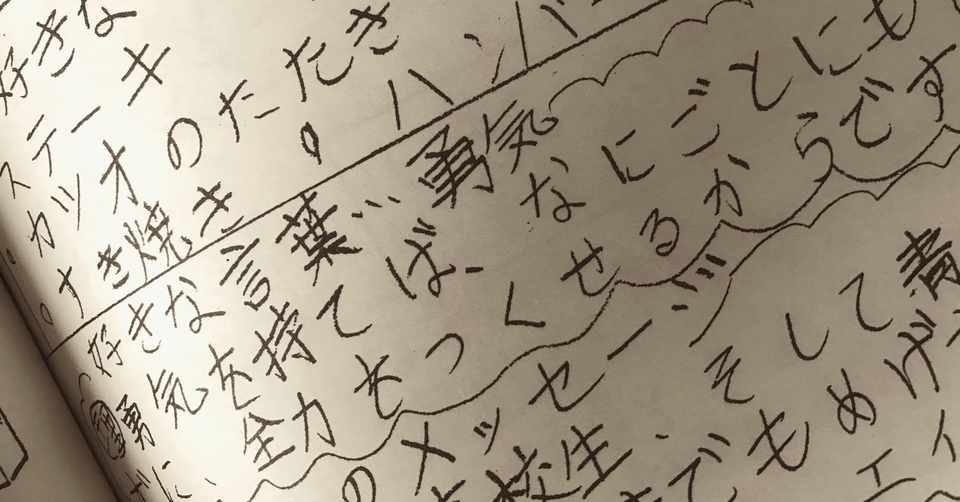 好きな
ステーキ
カツオのたたき
○すき焼き ○ハンバ
好きな言葉…勇気
勇気を持てば、なにごとにも
全力をつくせるからです
のメッセージ
校生、そして青
でもめげ